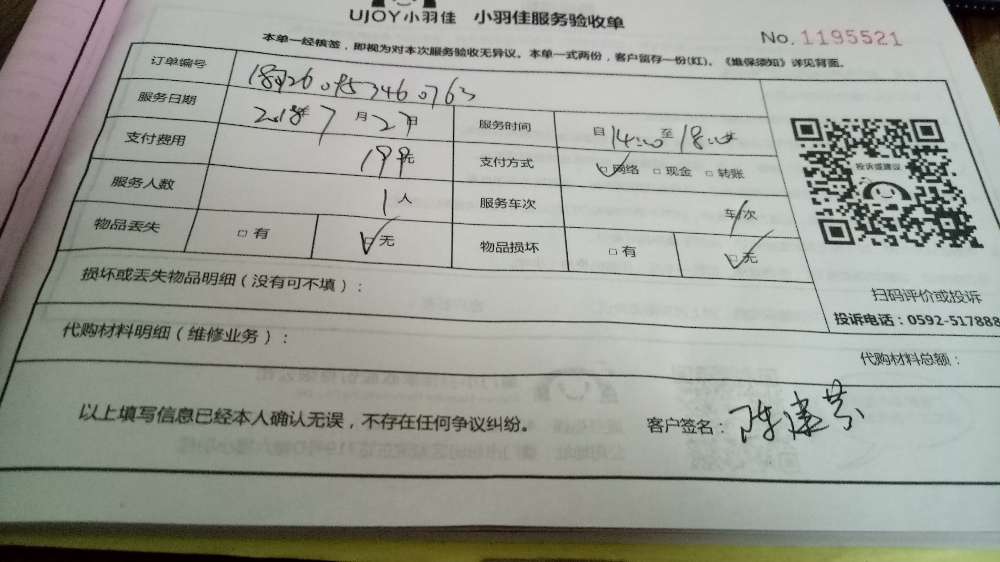 UJOY小羽佳 小羽佳服务验收单
No. 1195521
本单一经核签，即视为对本次服务验收无异议。本单一式两份，客户留存一份(红)。《维保须知》详见背面。
订单编号
服务日期 2018年7月27日 服务时间 自14:00至18:00
支付费用 199元 支付方式 网络 现金 转账
服务人数 1人 服务车次 车/次
物品丢失 有 无 物品损坏 有 无
投诉或建议
损坏或丢失物品明细（没有可不填）：
扫码评价或投诉
投诉电话：0592-517888
代购材料明细（维修业务）：
代购材料总额：
以上填写信息已经本人确认无误，不存在任何争议纠纷。
客户签名：陈建芬